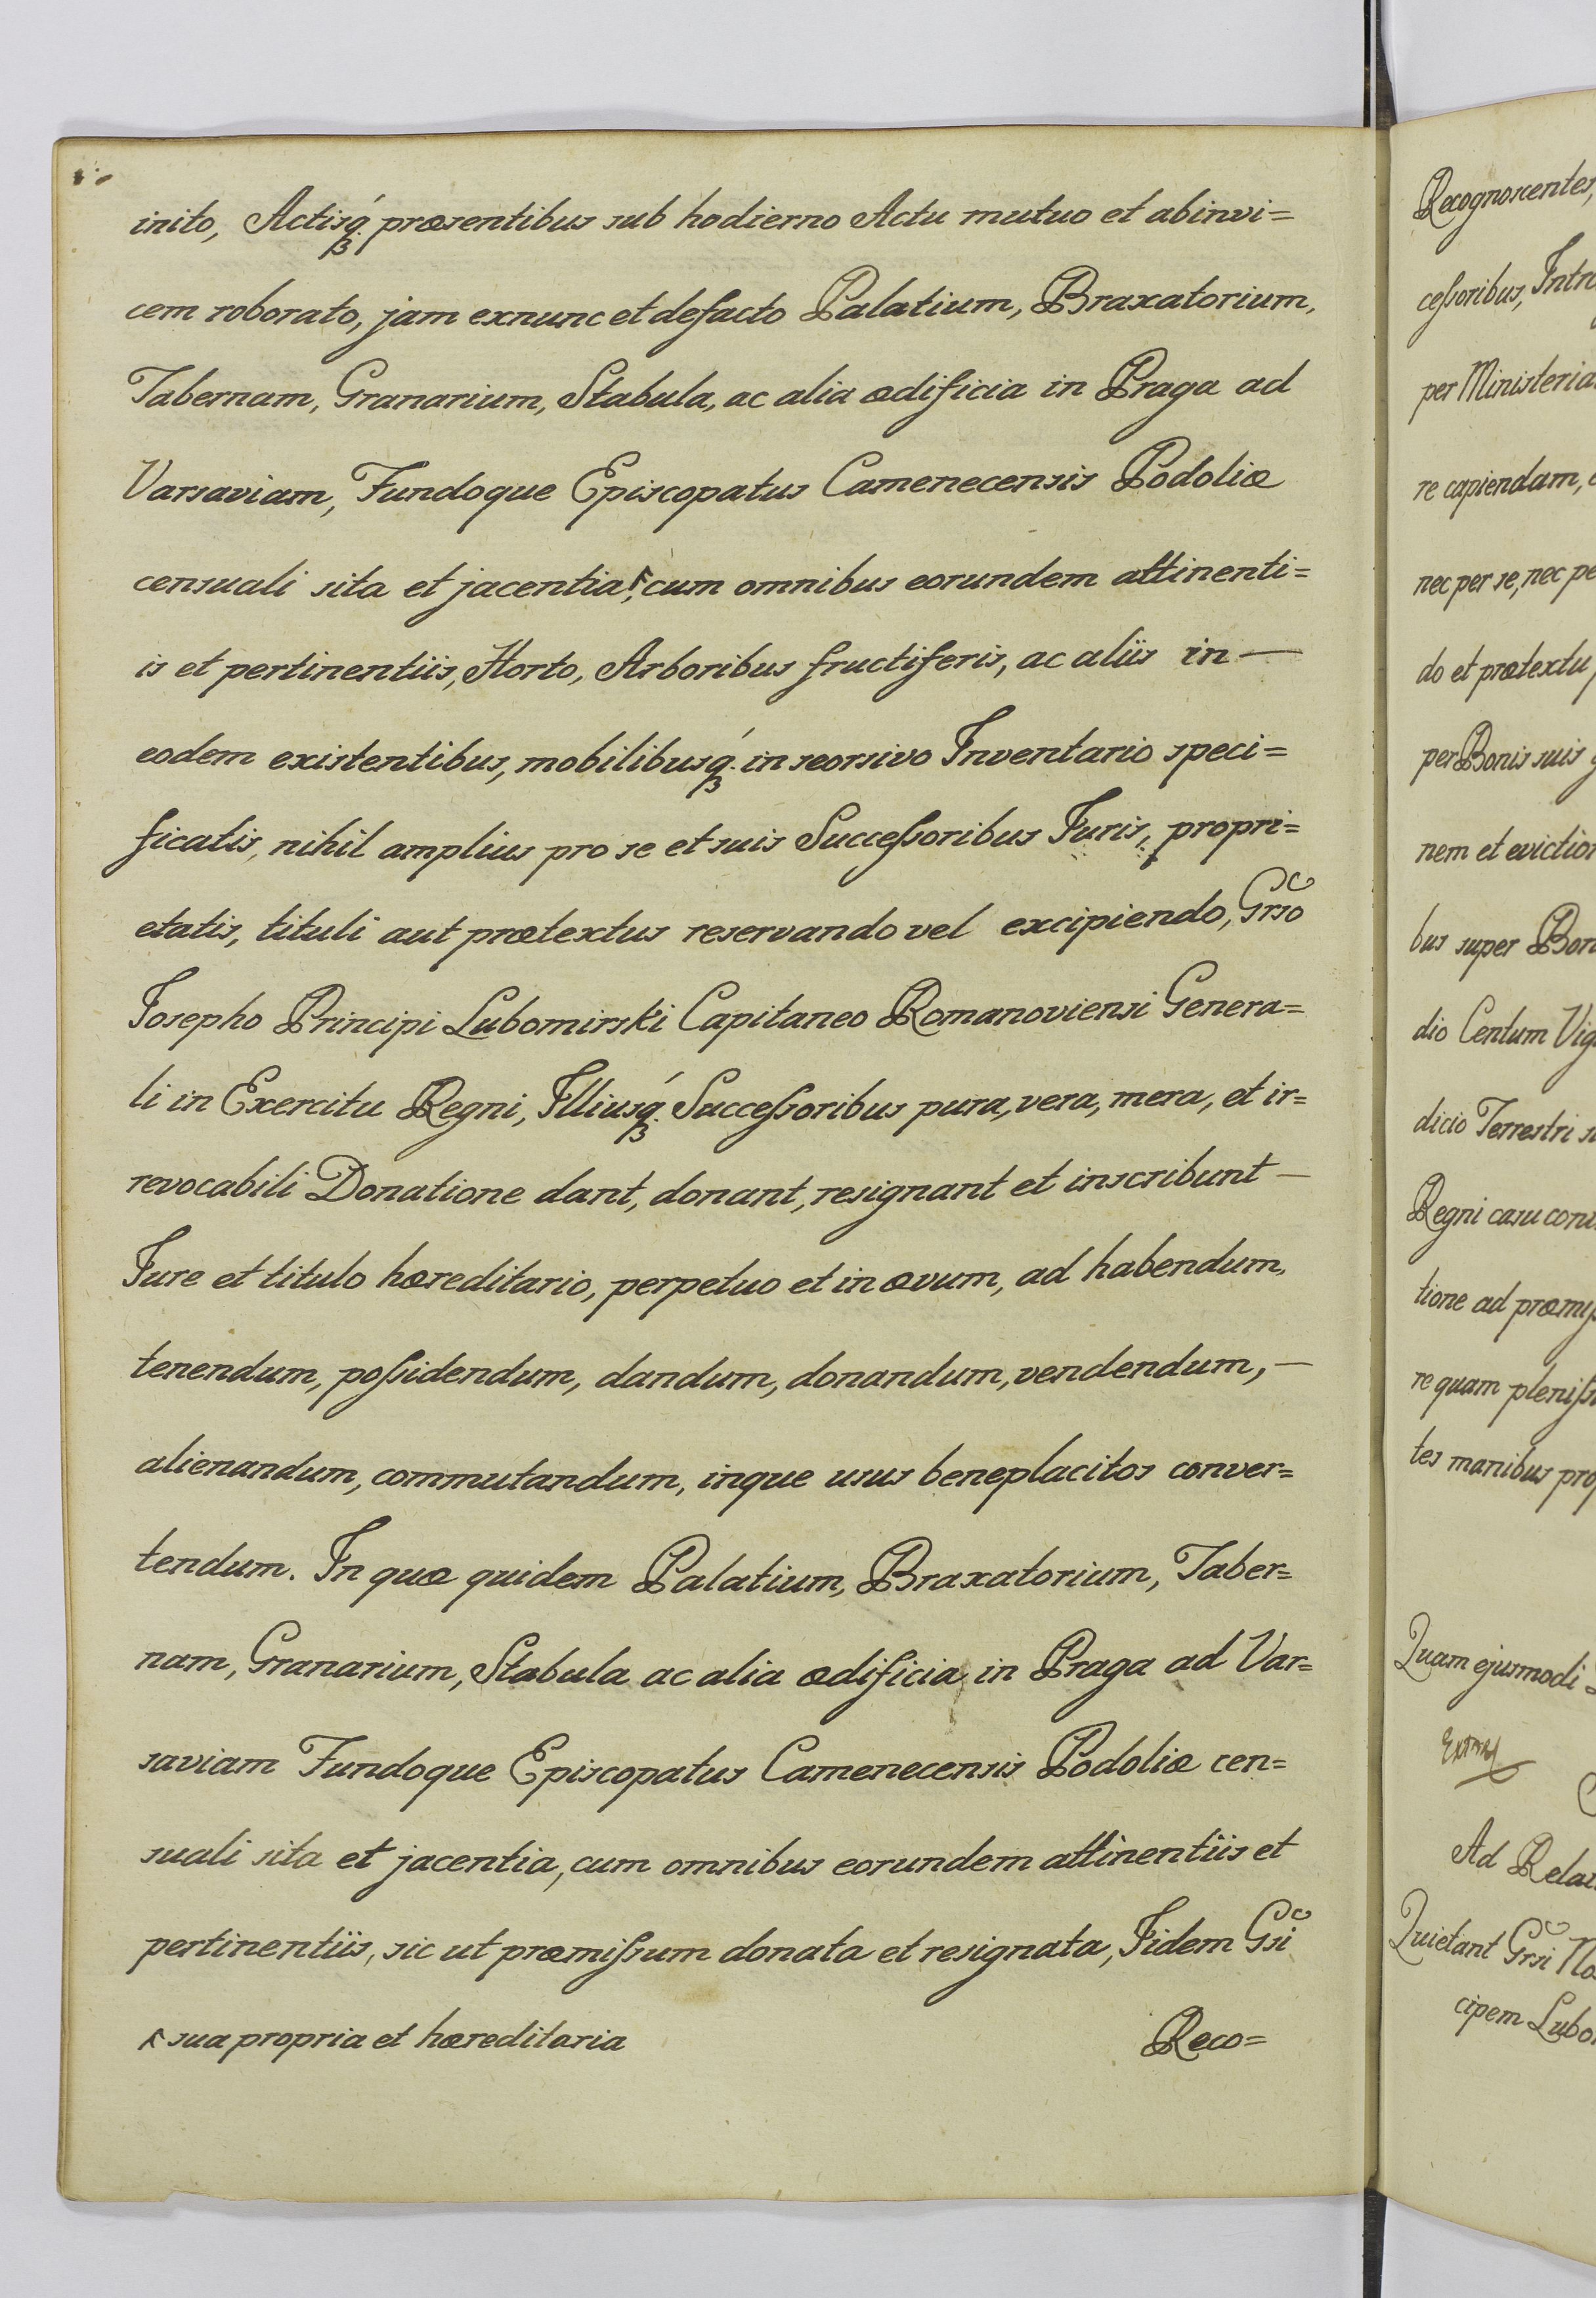 inito, Actisq́ꝫ præsentibus sub hodierno Actu mutuo et abinvi=
cem roborato, jam exnunc et defacto Palatium, Braxatorium,
Tabernam, Granarium, Stabula, ac alia ædificia in Praga ad
Varsaviam, Fundoque Episcopatus Camenecensis Podoliæ
censuali sita et jacentia, cum omnibus eorundem attinenti=
is et pertinentiis, Horto, Arboribus fructiferis, ac aliis in —
eodem existentibus, mobilibusq́ꝫ in seorsivo Inventario speci=
ficatis, nihil amplius pro se et suis Succeſsoribus Juris, propri=
etatis, tituli aut prætextus reservando vel excipiendo, Grso
Josepho Principi Lubomirski Capitaneo Romanoviensi Genera=
li in Exercitu Regni, Illiusq́ꝫ Succeſsoribus pura, vera, mera, et ir=
revocabili Donatione dant, donant, resignant et inscribunt —
Jure et titulo hæreditario, perpetuo et in ævum, ad habendum,
tenendum, poſsidendum, dandum, donandum, vendendum, —
alienandum, commutandum, inque usus beneplacitos conver=
tendum. In quæ quidem Palatium, Braxatorium, Taber=
nam, Granarium, Stabula ac alia ædificia in Praga ad Var=
saviam Fundoque Episcopatus Camenecensis Podoliæ cen=
suali sita et jacentia, cum omnibus eorundem attinentiis et
pertinentiis, sic ut præmiſsum donata et resignata, Iidem Gsi
sua propria et hæreditaria
Reco=
Recognoscentes,
ceſsoribus, Intro
per Ministeria
re capiendam,
nec per se, nec pe
do et prætextu
per Bonis suis
nem et eviction
bus super Bon
dio Centum Vig
dicio Terrestri
Regni casu conv
tione ad præmiſ
re quam pleniſs
tes manibus prop
Quam ejusmodi
Ad Rela
Quietant Grsi No
cipem Lubo